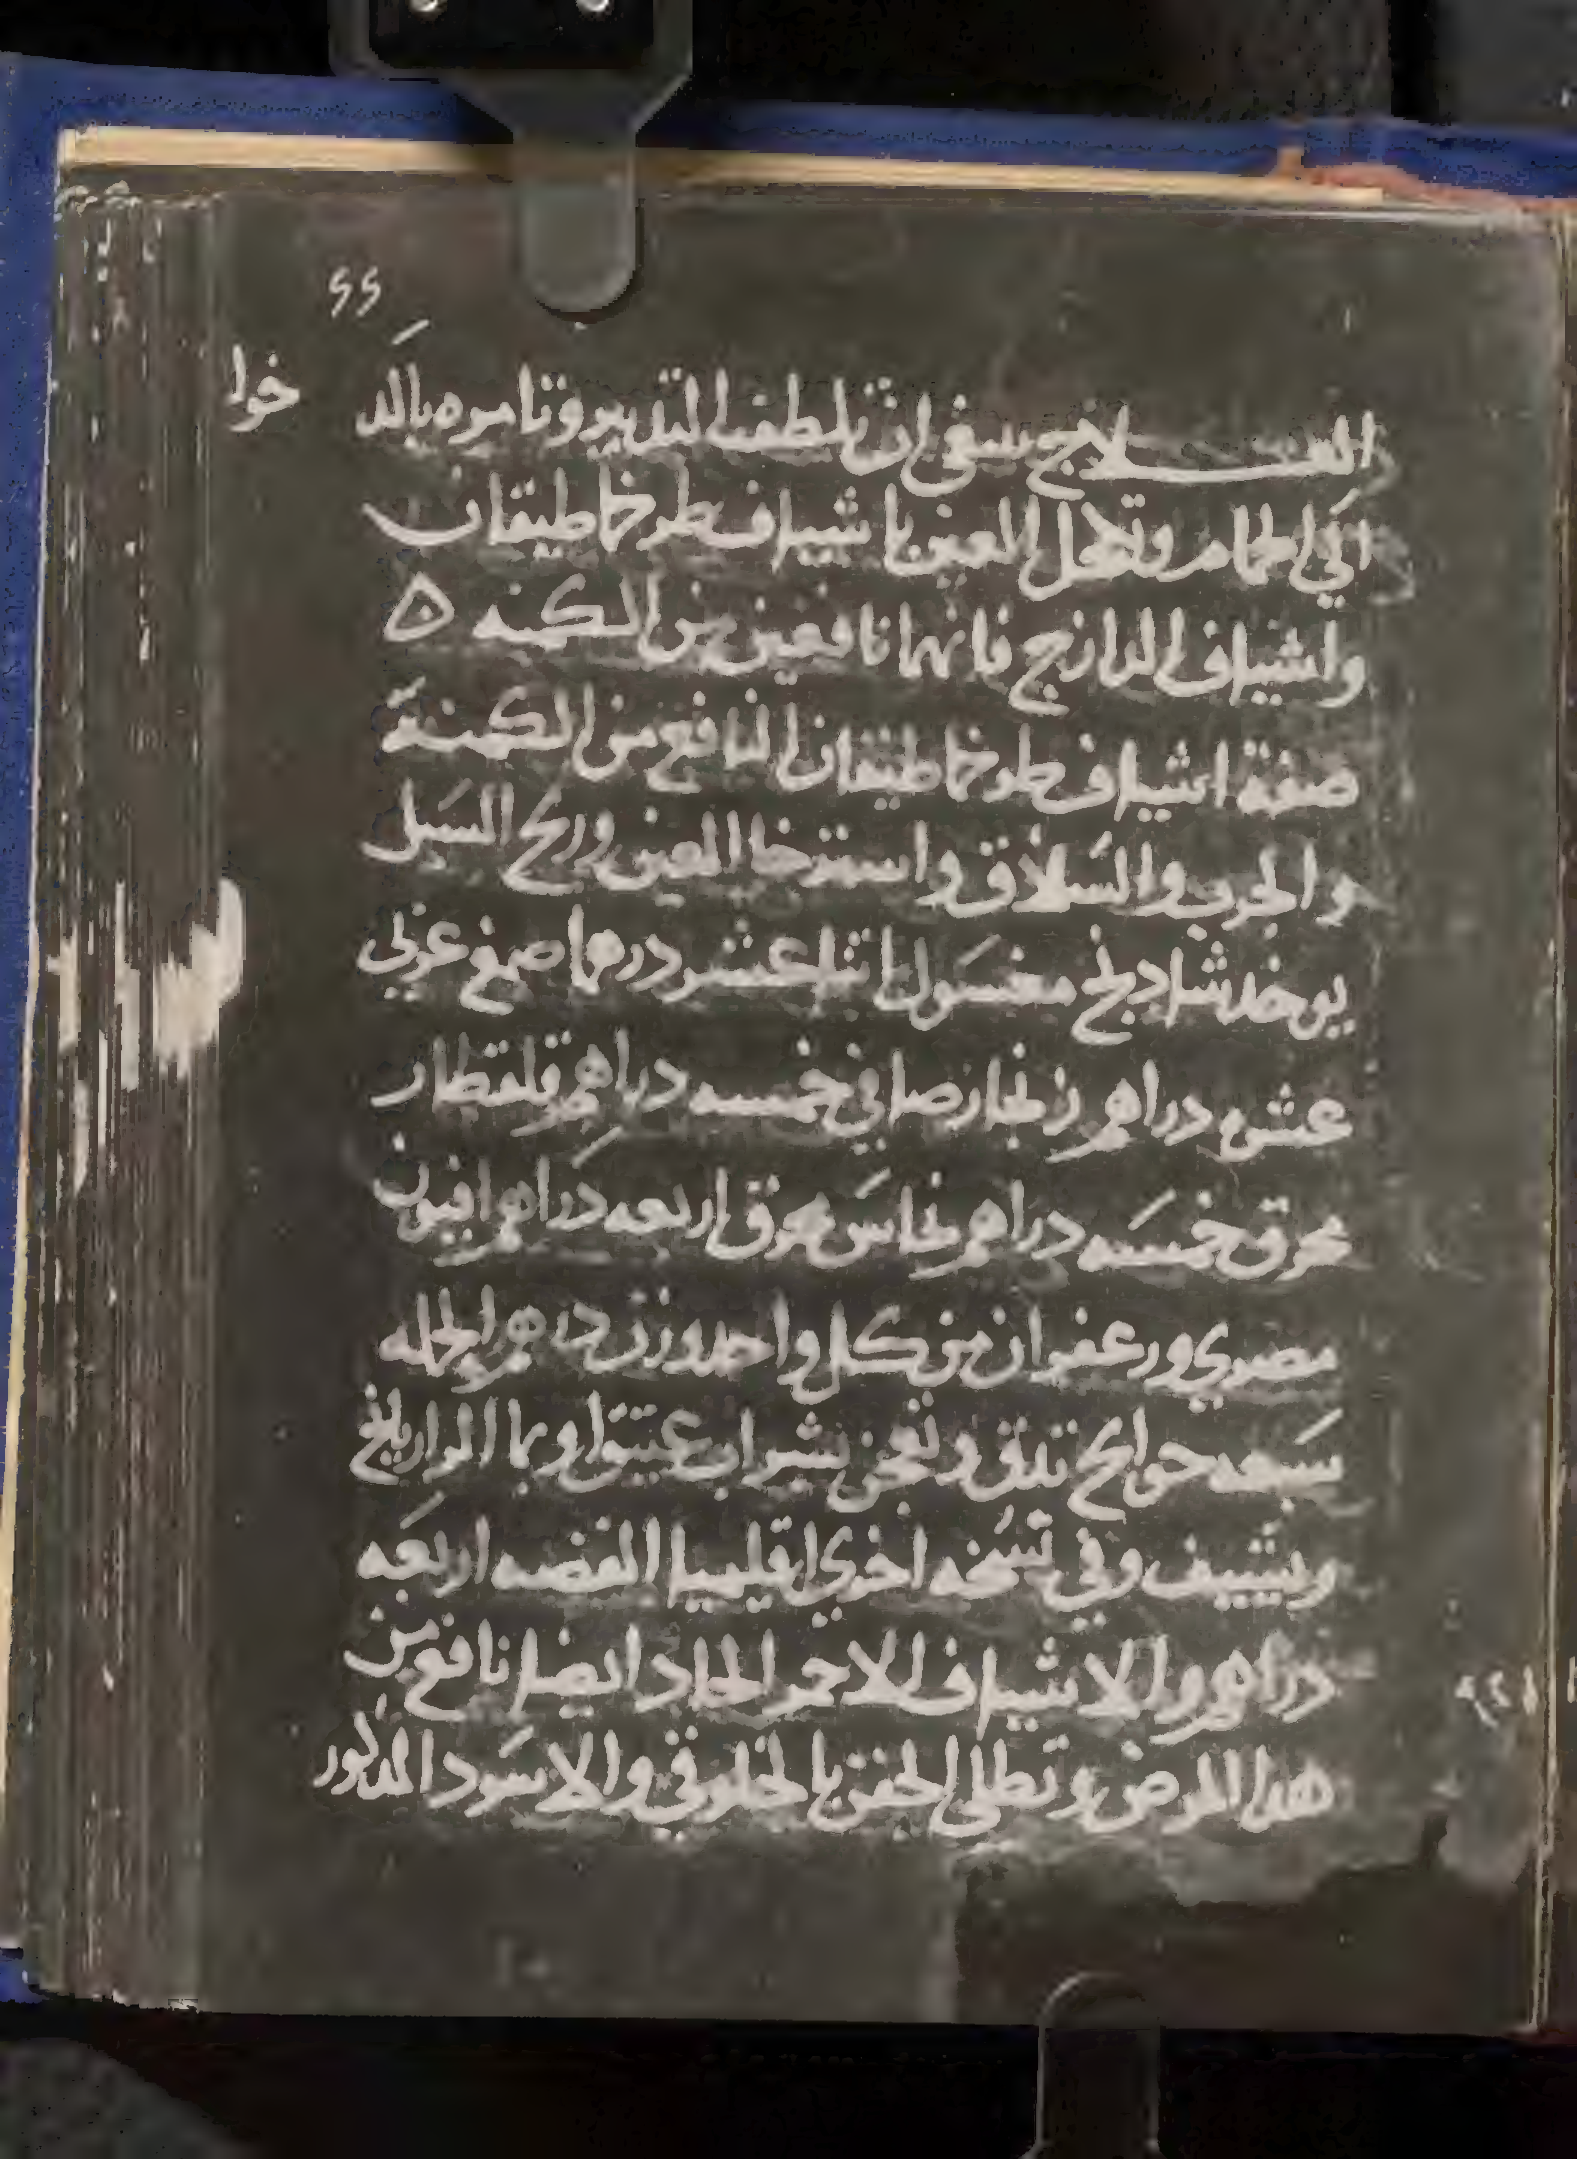 ٢٢
العـــــلاج ينبغي ان تلطف التدبير وتامره بالد خوا
الي الحمام وتكحل العين باشياف طرخماطيقان
واشياف الدارنج فانهما نافعين من الكمنه ٥
صفة اشياف طرخماطيقان النافع من الكمنة
والجرب والسَلاق واسترخا العين وريح السَبل
يوخد شادنج مغسَول اثنا عشر درهما صمغ عربي
عشره دراهم زنجار صافي خمسه دراهم قلقطار
محرق خمسَه دراهم نحاسَ محرق اربعه دراهم افيون
مصري وزعفران من كل واحد وزن درهم الجمله
سَبعه حوايج تدق وتعجن بشراب عتيق او بما الرازيانج
ويشيف وفي نسُخه اخري اقليميا الفضه اربعَه
دراهم والاشياف الاحمر الحاد ايضا نافع من
هدا المرض وتطلي الجفن بالخلوقي والاسَود المدكور